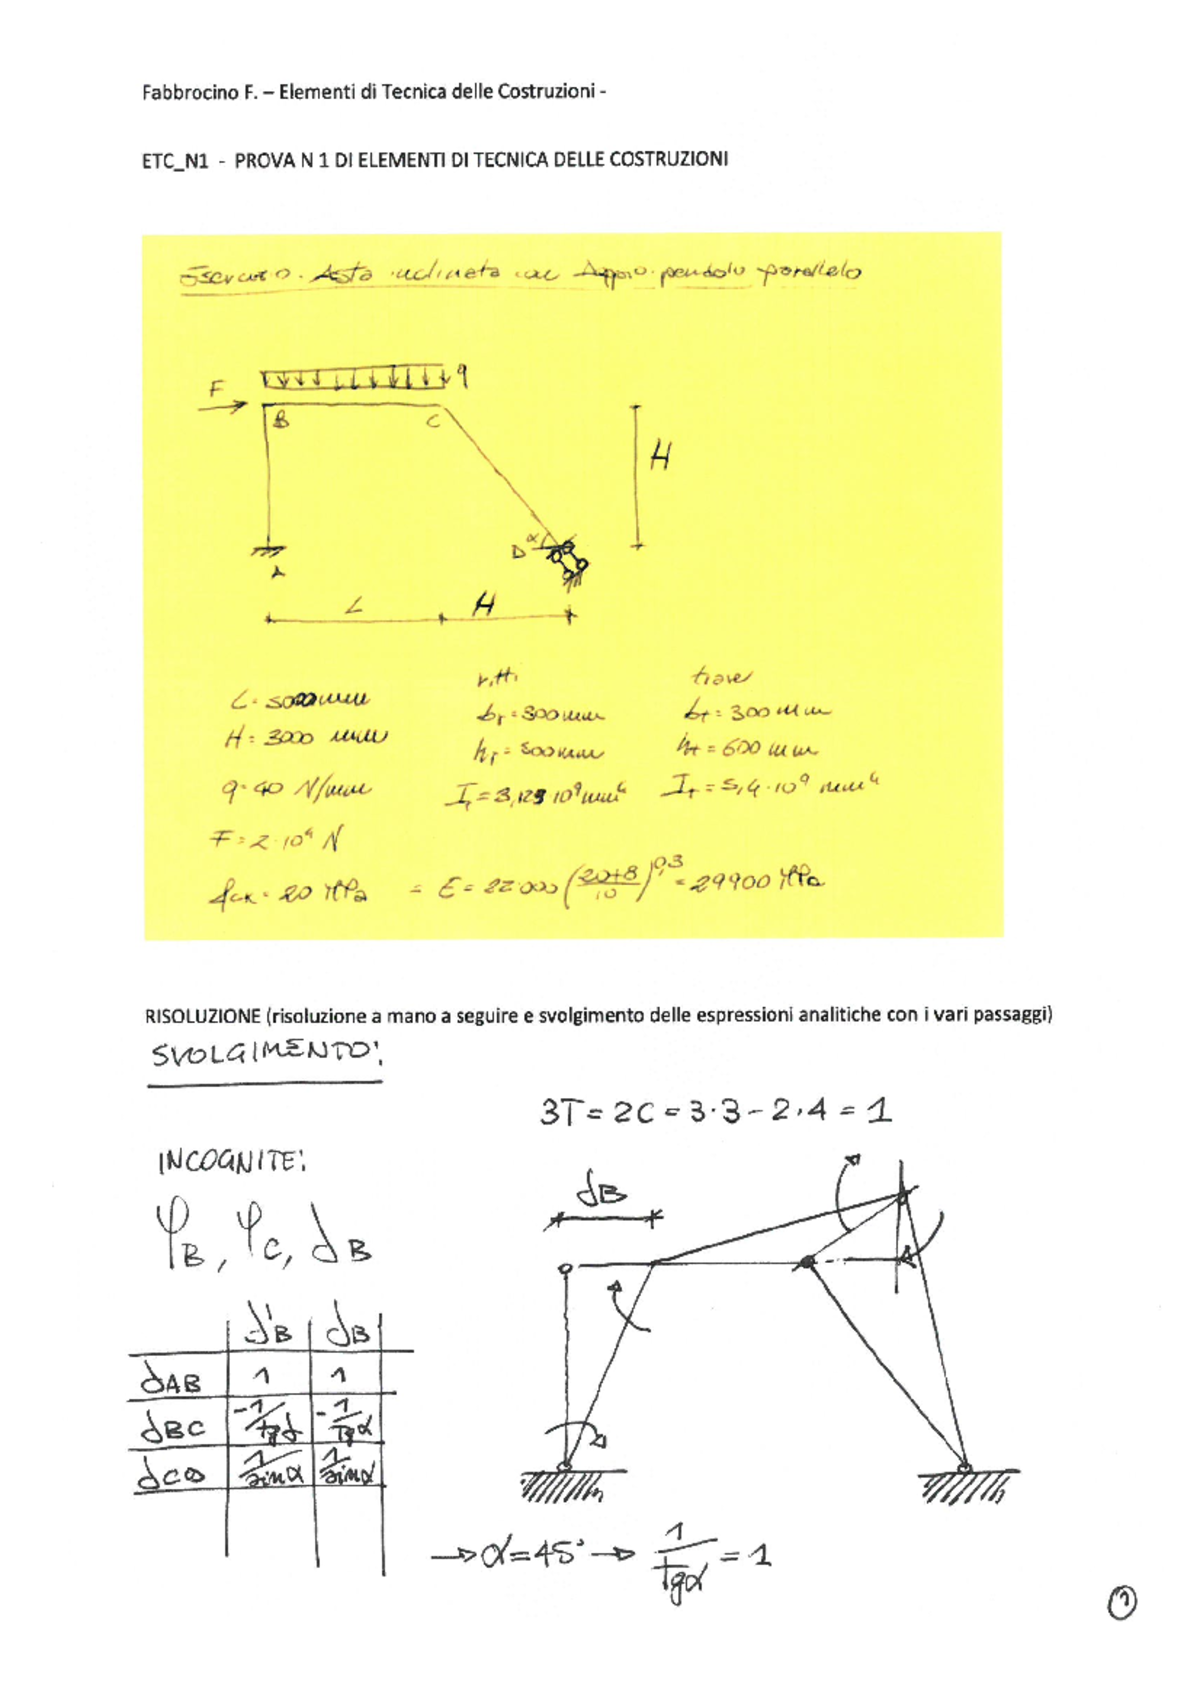 Fabbrocino F. – Elementi di Tecnica delle Costruzioni -
ETC_N1 - PROVA N 1 DI ELEMENTI DI TECNICA DELLE COSTRUZIONI
Esercizio. Asta inclinata con Appoio pendolo parallelo
q
F
B C
H
α
D
A
L H
ritti trave
L = 5000 mm br = 300 mm bt = 300 mm
H = 3000 mm hr = 500 mm ht = 600 mm
q = 40 N/mm Ir = 3,125 10⁹ mm⁴ IT = 5,4 · 10⁹ mm⁴
F = 2 · 10⁴ N
fck = 20 MPa = E = 22000 (20+8/10)^0,3 = 29900 MPa
RISOLUZIONE (risoluzione a mano a seguire e svolgimento delle espressioni analitiche con i vari passaggi)
SVOLGIMENTO:
3T = 2C = 3·3 - 2·4 = 1
INCOGNITE:
φB, φC, dB
dB
d'B dB
dAB 1 1
dBC -1/tgα -1/tgα
dCD 1/sinα 1/sinα
→ α = 45° → 1/tgα = 1
1